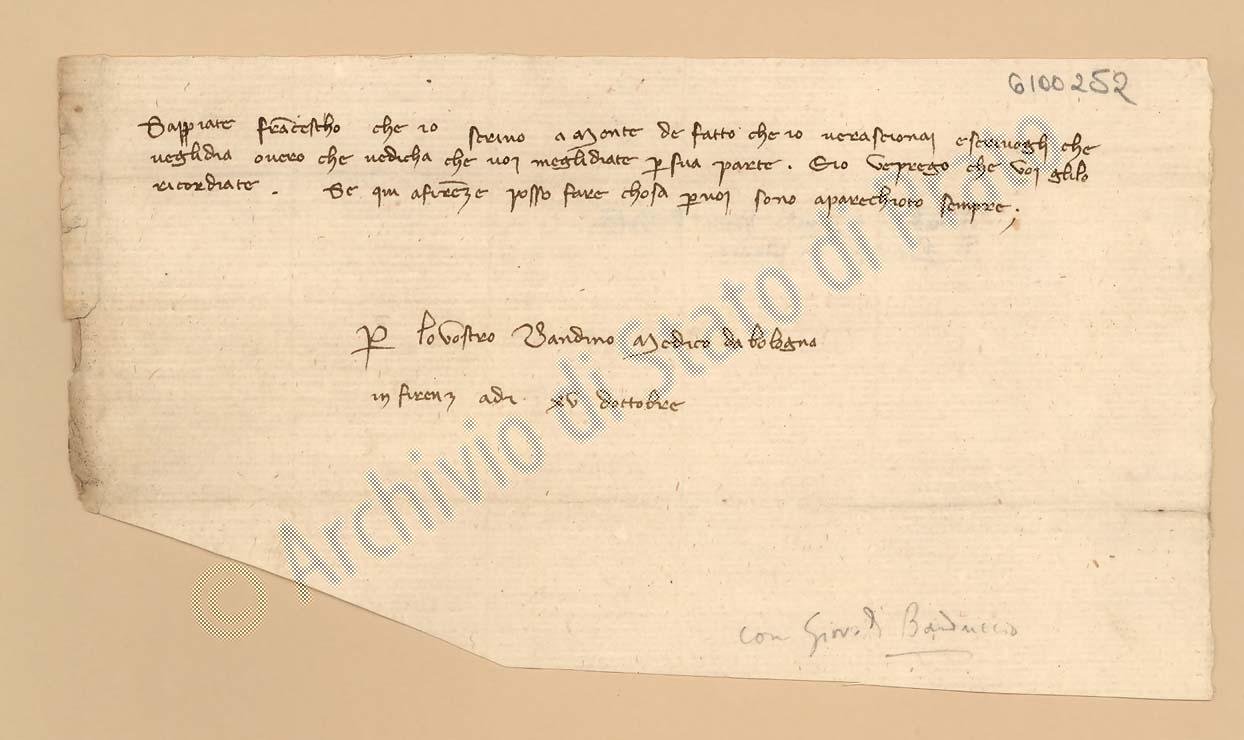 6100252
Sappiate franċescho che io scrivo a Monte de fatto che io verascionai escrivogli che
veglidia overo che vedicha che voi meglidiate ꝑ sua parte. Eio veprego che voi glilo
ricordiate. Se qui afirenze posso fare chosa ꝑ voi sono aparechiato sempre.
ꝑ lo vostro Bandino Medico da bologna
in firenz adi xv dottobre
con Giov. di Banduccio
© Archivio di Stato di Prato